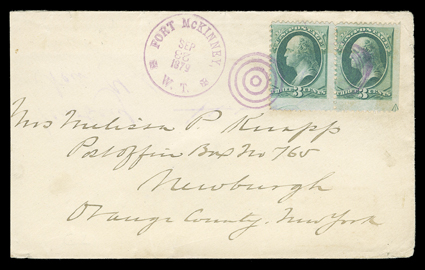 FORT McKINNEY,
SEP
22
1879
W. T.
U.S. POSTAGE
3 CENTS
THREE CENTS
Mrs Melissa P. Knapp
Postoffice Box No 765
Newburgh
Orange County. New York